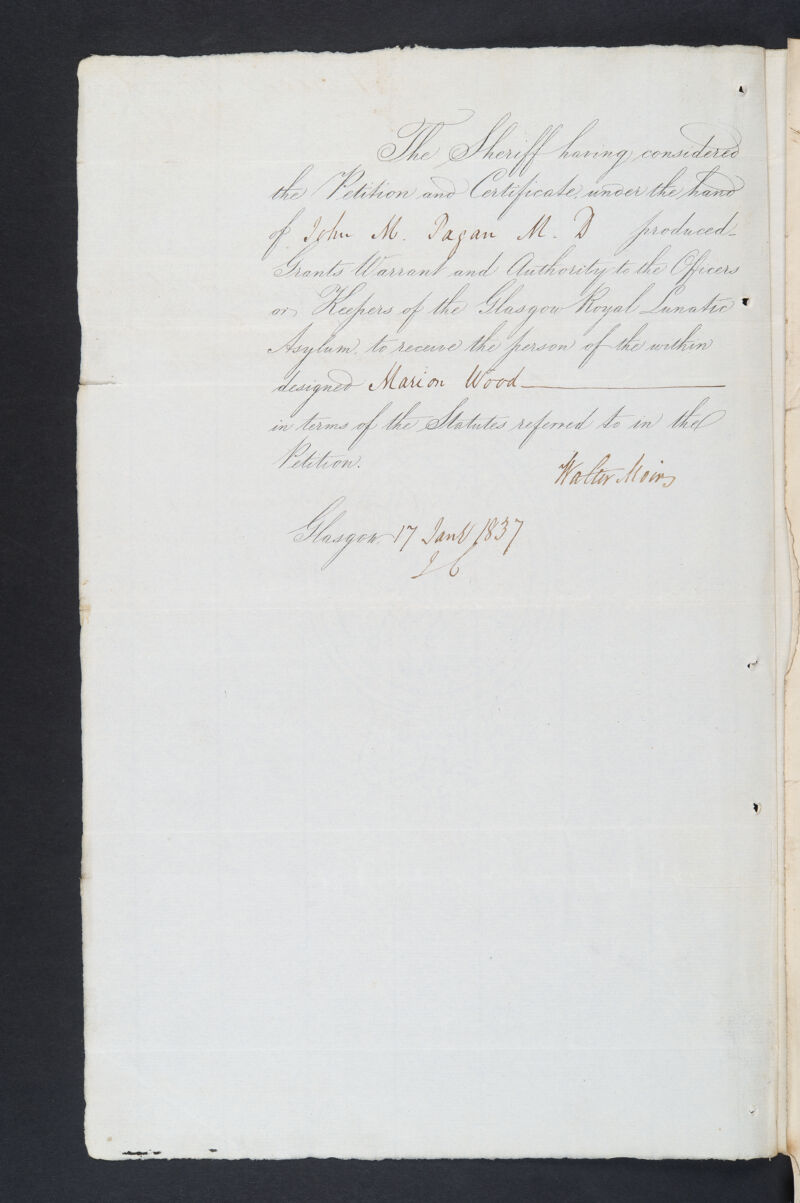 The Sheriff having considered
the Petition and Certificate under the hand
of John M. Pagan M. D produced
Grants Warrant and Authority to the Officers
or Keepers of the Glasgow Royal Lunatic
Asylum, to receive the person of the within
designed Marion Wood
in terms of the Statutes referred to in the
Petition.
Walter Moir
Glasgow 17 Jany 1837